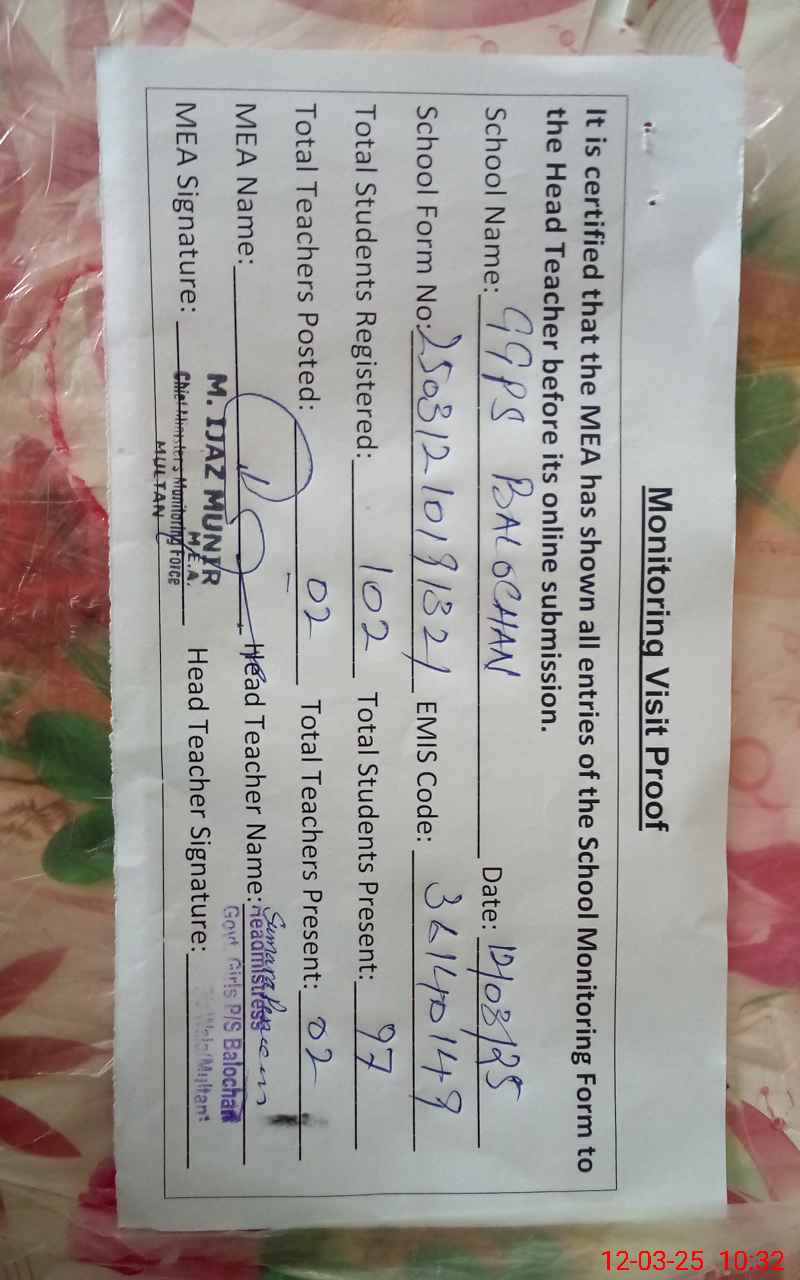 Monitoring Visit Proof
It is certified that the MEA has shown all entries of the School Monitoring Form to
the Head Teacher before its online submission.
School Name: GGPS BALOCHAN Date: 12/03/25
School Form No: 25031210191321 EMIS Code: 36140149
Total Students Registered: 102 Total Students Present: 97
Total Teachers Posted: 02 Total Teachers Present: 02
MEA Name: Head Teacher Name: Sumara
Headmistress
M. IJAZ MUNIR
M.E.A.
Govt Girls P/S Balochan
MEA Signature: Chief Ministers Monitoring Force Head Teacher Signature:
Multan
MULTAN
12-03-25 10:32